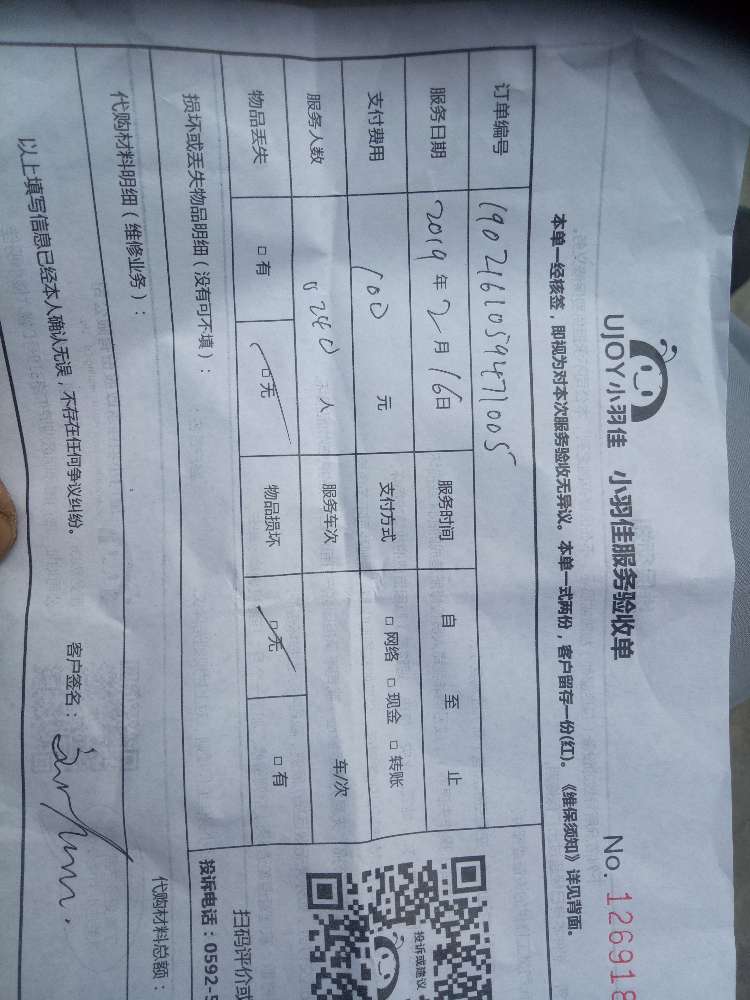 UJOY小羽佳 小羽佳服务验收单 No. 126918
本单一经核签，即视为对本次服务验收无异议。本单一式两份，客户留存一份(红)。《维保须知》详见背面。
订单编号 19021610594471005
服务日期 2019年2月16日 服务时间 自 至 止
支付费用 100 元 支付方式 □网络 □现金 □转账
服务人数 240 人 服务车次 车/次
物品丢失 □有 □无 物品损坏 □无 □有
损坏或丢失物品明细（没有可不填）：
代购材料明细（维修业务）：
代购材料总额：
以上填写信息已经本人确认无误，不存在任何争议纠纷。 客户签名：
投诉或建议
扫码评价或
投诉电话：0592-5